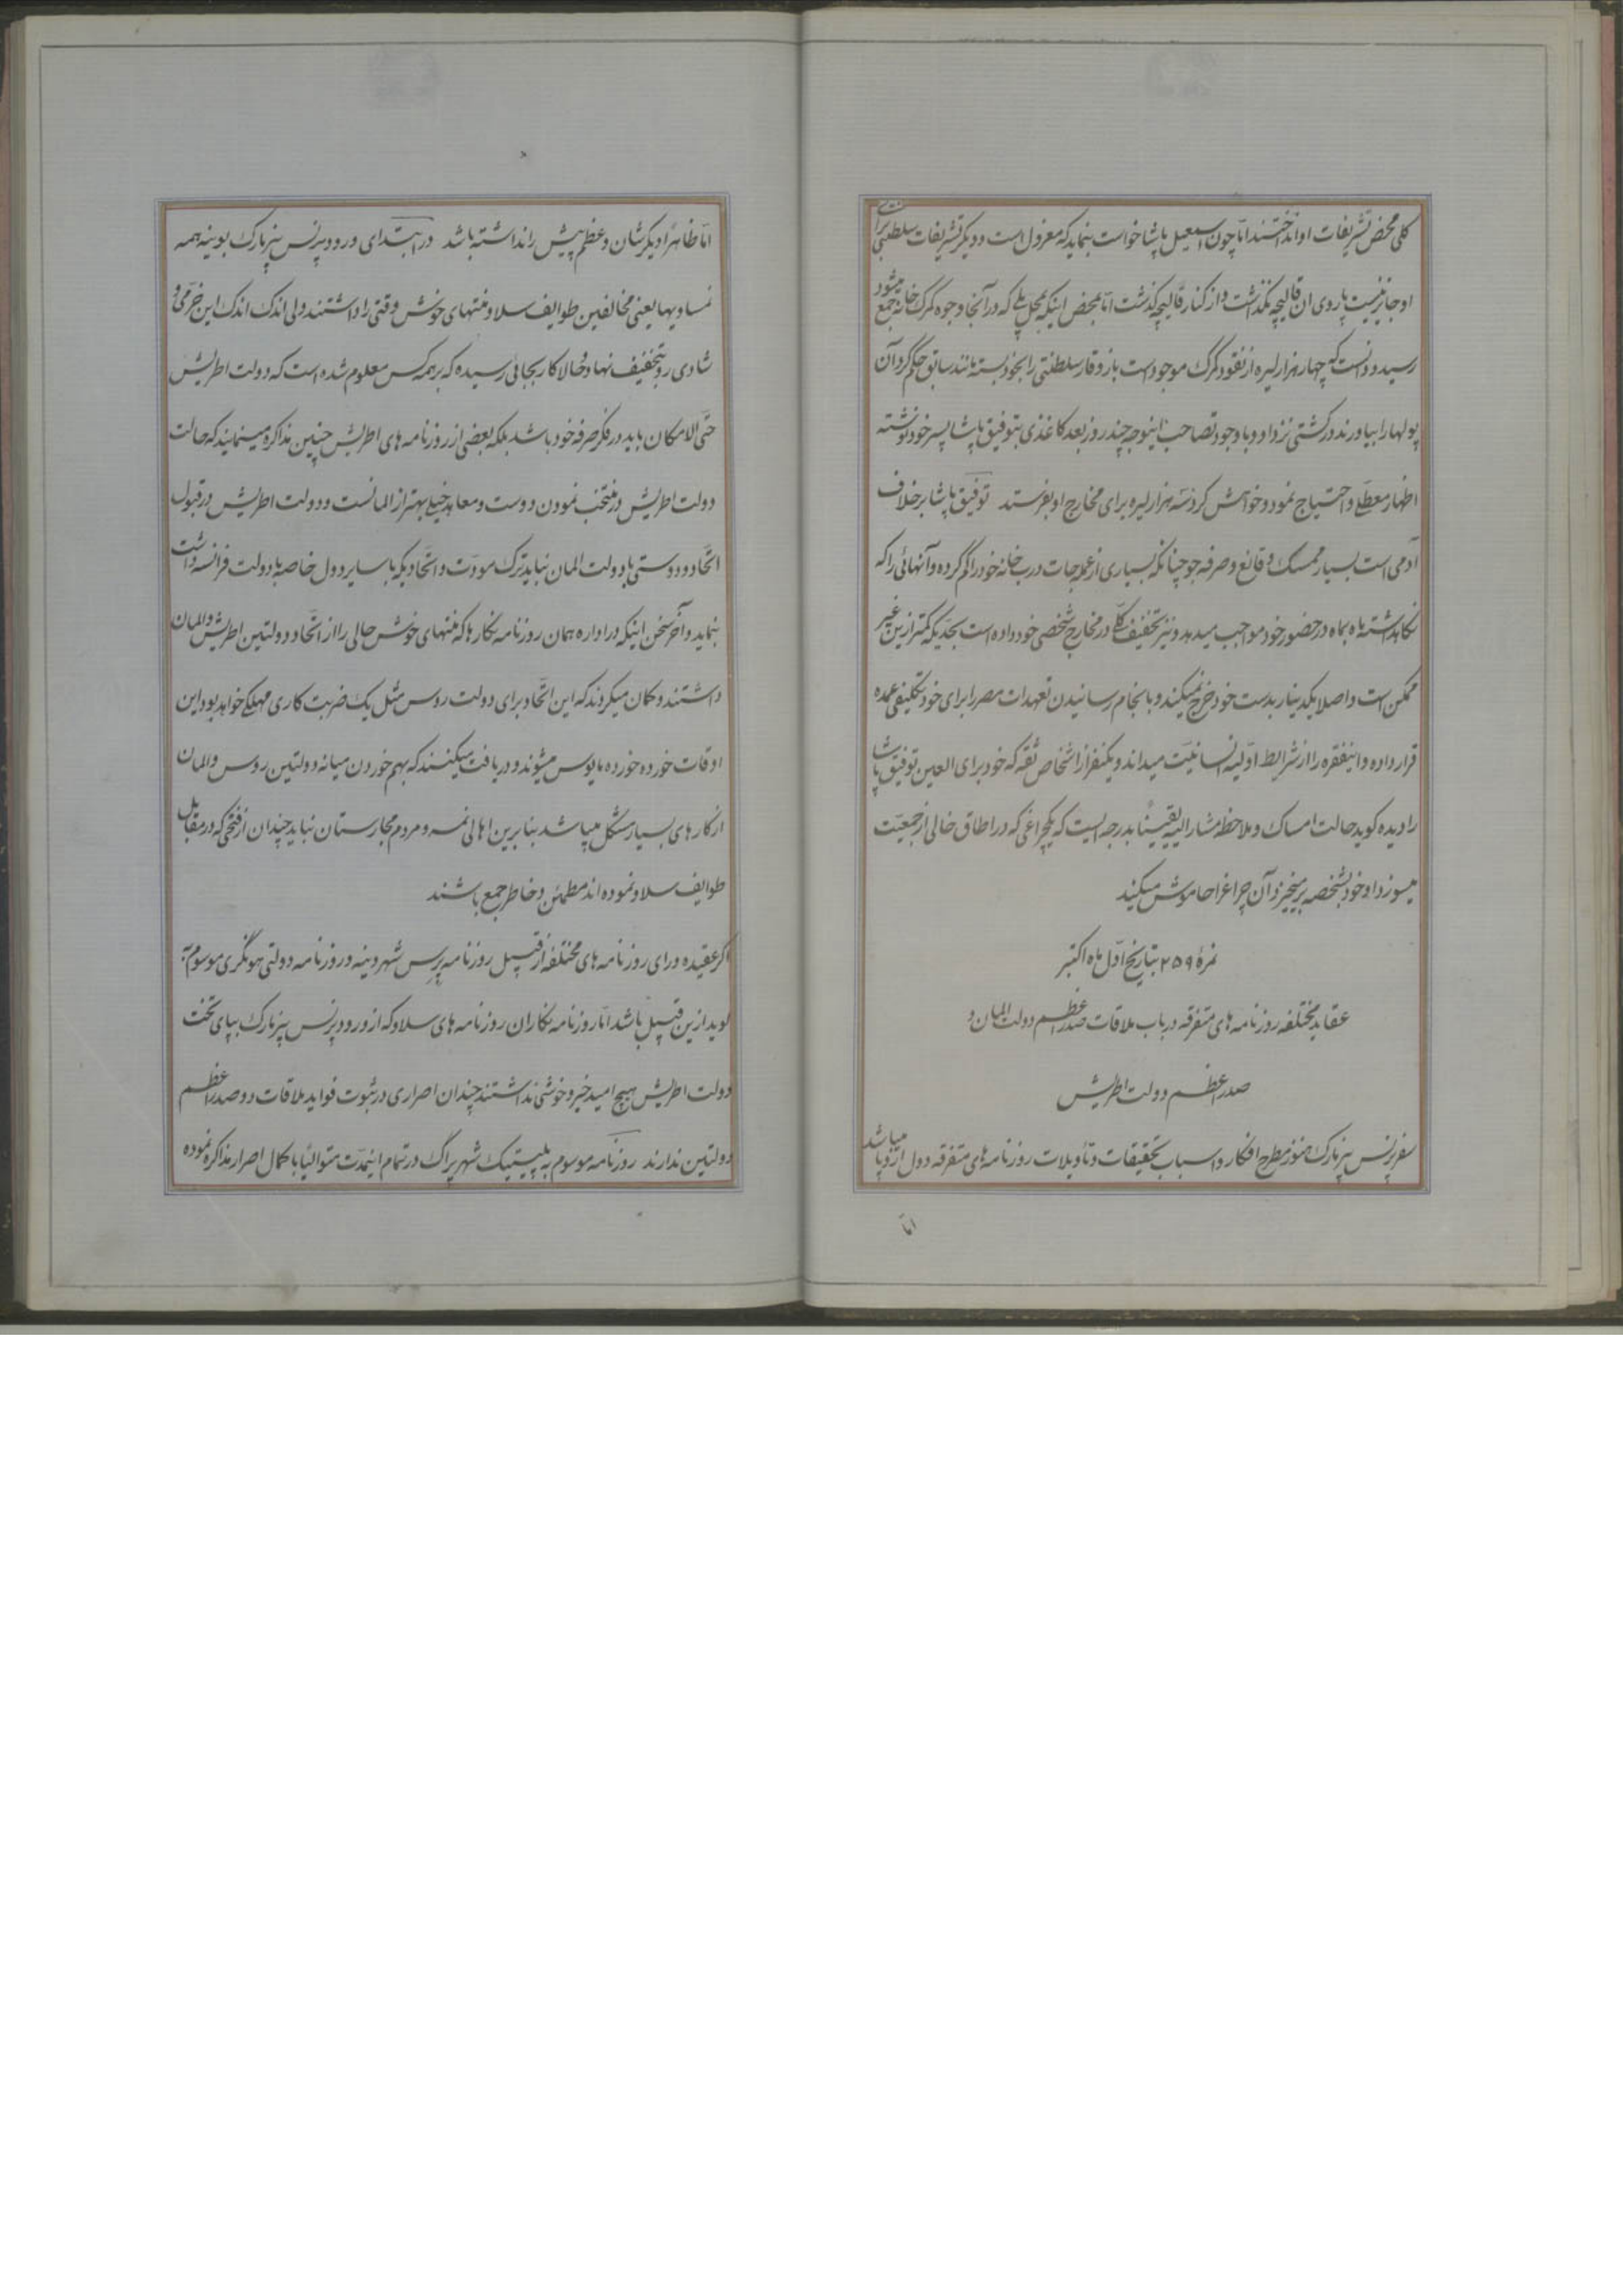 کلی محض تشریفات او انداختند اما چون اسمعیل پاشا خواست بنماید که معزول است و دیگر تشریفات سلطنتی برای
او جایز نیست پا روی ان قالیچه نگذاشت و از کنار قالیچه گذشت اما بمحض اینکه بمحلی که در آنجا وجوه گمرک خانه جمع میشود
رسید و دانست که چهار هزار لیره از نقود گمرک موجود است باز وقار سلطنتی را بخود بسته مانند سابق حکم کرد آن
پولها را بیاورند در کشتی نزد او و با وجود تصاحب اینوجه چند روز بعد کاغذی بتوفیق پاشا پسر خود نوشته
اظهار معطلی و احتیاج نمود و خواهش کرد سه هزار لیره برای مخارج او بفرستد توفیق پاشا برخلاف
آدمی است بسیار ممسک و قانع و صرفه جو چنانکه بسیاری از عمله جات درب خانه خود را کم کرده و آنهائی را که
نگاهداشته ماه بماه در حضور خود مواجب میدهد و نیز تخفیف کلی در مخارج شخصی خود داده است بحدیکه کمتر ازین غیر
ممکن است و اصلا یکدینار بدست خود خرج نمیکند و بانجام رسانیدن تعهدات مصر را برای خود تکلیفی عمده
قرار داده و اینفقره را از شرایط اولیه انسانیت میداند و یکنفر از اشخاص ثقه که خود برای العین توفیق پاشا
را دیده گوید حالت امساک و ملاحظه مشار الیه یقینا بدرجه ایست که یکچراغی که در اطاق خالی از جمعیت
میسوزد او خود بشخصه برمیخیزد آن چراغرا خاموش میکند
نمرهٔ ۲۵۹ بتاریخ اول ماه اکتبر
عقاید مختلفه روزنامه های متفرقه در باب ملاقات صدر اعظم دولت المان و
صدر اعظم دولت اطریش
سفر پرنس بیزمارک هنوز مطرح افکار و اسباب تحقیقات و تأویلات روزنامه های متفرقه دول اروپا میباشد
اما
اما ظاهرا دیگر شان و عظم پیش را نداشته باشد در ابتدای ورود پرنس بیزمارک بوینه همه
نمساویها یعنی مخالفین طوایف سلاو منتهای خوش وقتی را داشتند ولی اندک اندک این خرمی و
شادی رو بتخفیف نهاد و حالا کار بجائی رسیده که بر همه کس معلوم شده است که دولت اطریش
حتی الامکان باید در فکر صرفه خود باشد بلکه بعضی از روزنامه های اطریش چنین مذاکره مینمایند که حالت
دولت اطریش در منتخب نمودن دوست و معاهد خیلی بهتر از المانست و دولت اطریش در قبول
اتحاد و دوستی با دولت المان نباید ترک مودت و اتحادیکه با سایر دول خاصه با دولت فرانسه داشت
بنماید و آخر سخن اینکه در اداره همان روزنامه نگارها که منتهای خوش حالی را از اتحاد دولتین اطریش و المان
داشتند و گمان میکردند که این اتحاد برای دولت روس مثل یک ضربت کاری مهلکی خواهد بود این
اوقات خورده خورده مایوس میشوند و دریافت میکنند که بهم خوردن میانه دولتین روس و المان
از کارهای بسیار مشکل میباشد بنابرین اهالی نمسه و مردم مجارستان نباید چندان از فتحی که در مقابل
طوایف سلاو نموده اند مطمئن و خاطر جمع باشند
اگر عقیده و رای روزنامه های مختلفه از قبیل روزنامه پرس شهر وینه و روزنامه دولتی هونگری موسوم به
لوید ازین قبیل باشد اما روزنامه نگاران روزنامه های سلاو که از ورود پرنس بیزمارک بپای تخت
دولت اطریش هیچ امید خیر و خوشی نداشتند چندان اصراری در ثبوت فواید ملاقات دو صدر اعظم
دولتین ندارند روزنامه موسوم به پلیتیک شهر پراگ در تمام اینمدت متوالیا با کمال اصرار مذاکره نموده